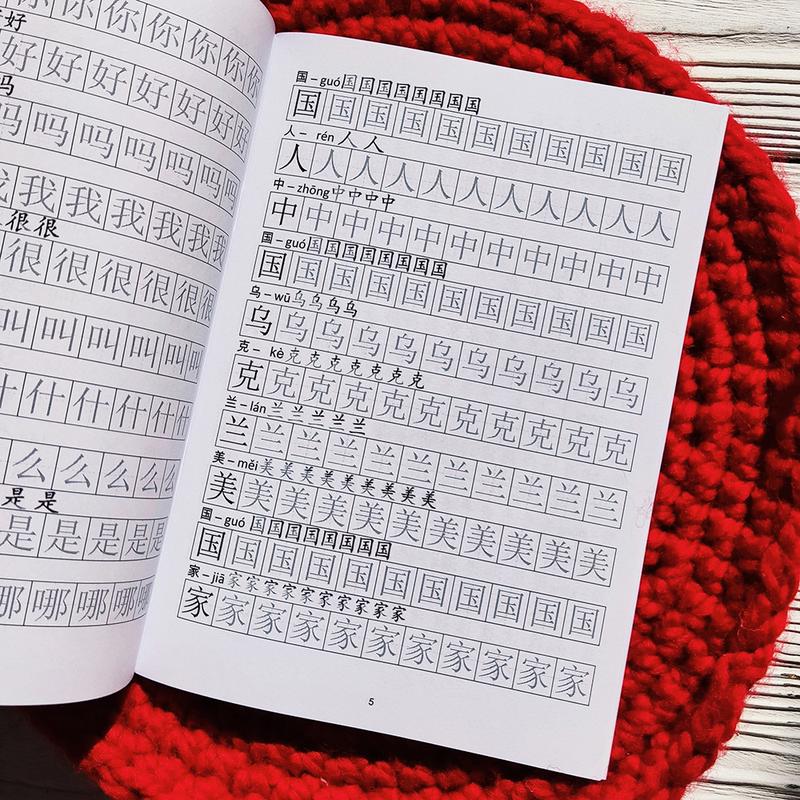 你你你你你你你
好
好好好好好好好
吗
吗吗吗吗吗吗吗
我我我我我我
很很
很很很很很很
叫叫叫叫叫叫
什什什什什
么么么么么
是是
是是是是是
哪哪哪哪哪
国 – guó 国国国国国国国国
国国国国国国国国国国国
人 – rén 人人
人人人人人人人人人人人
中 – zhōng 中中中中
中中中中中中中中中中中
国 – guó 国国国国国国国国
国国国国国国国国国国国
乌 – wū 乌乌乌乌
乌乌乌乌乌乌乌乌乌乌乌
克 – kè 克克克克克克克
克克克克克克克克克克克
兰 – lán 兰兰兰兰兰
兰兰兰兰兰兰兰兰兰兰兰
美 – měi 美美美美美美美美美
美美美美美美美美美美美
国 – guó 国国国国国国国国
国国国国国国国国国国国
家 – jiā 家家家家家家家家家家
家家家家家家家家家家家
5